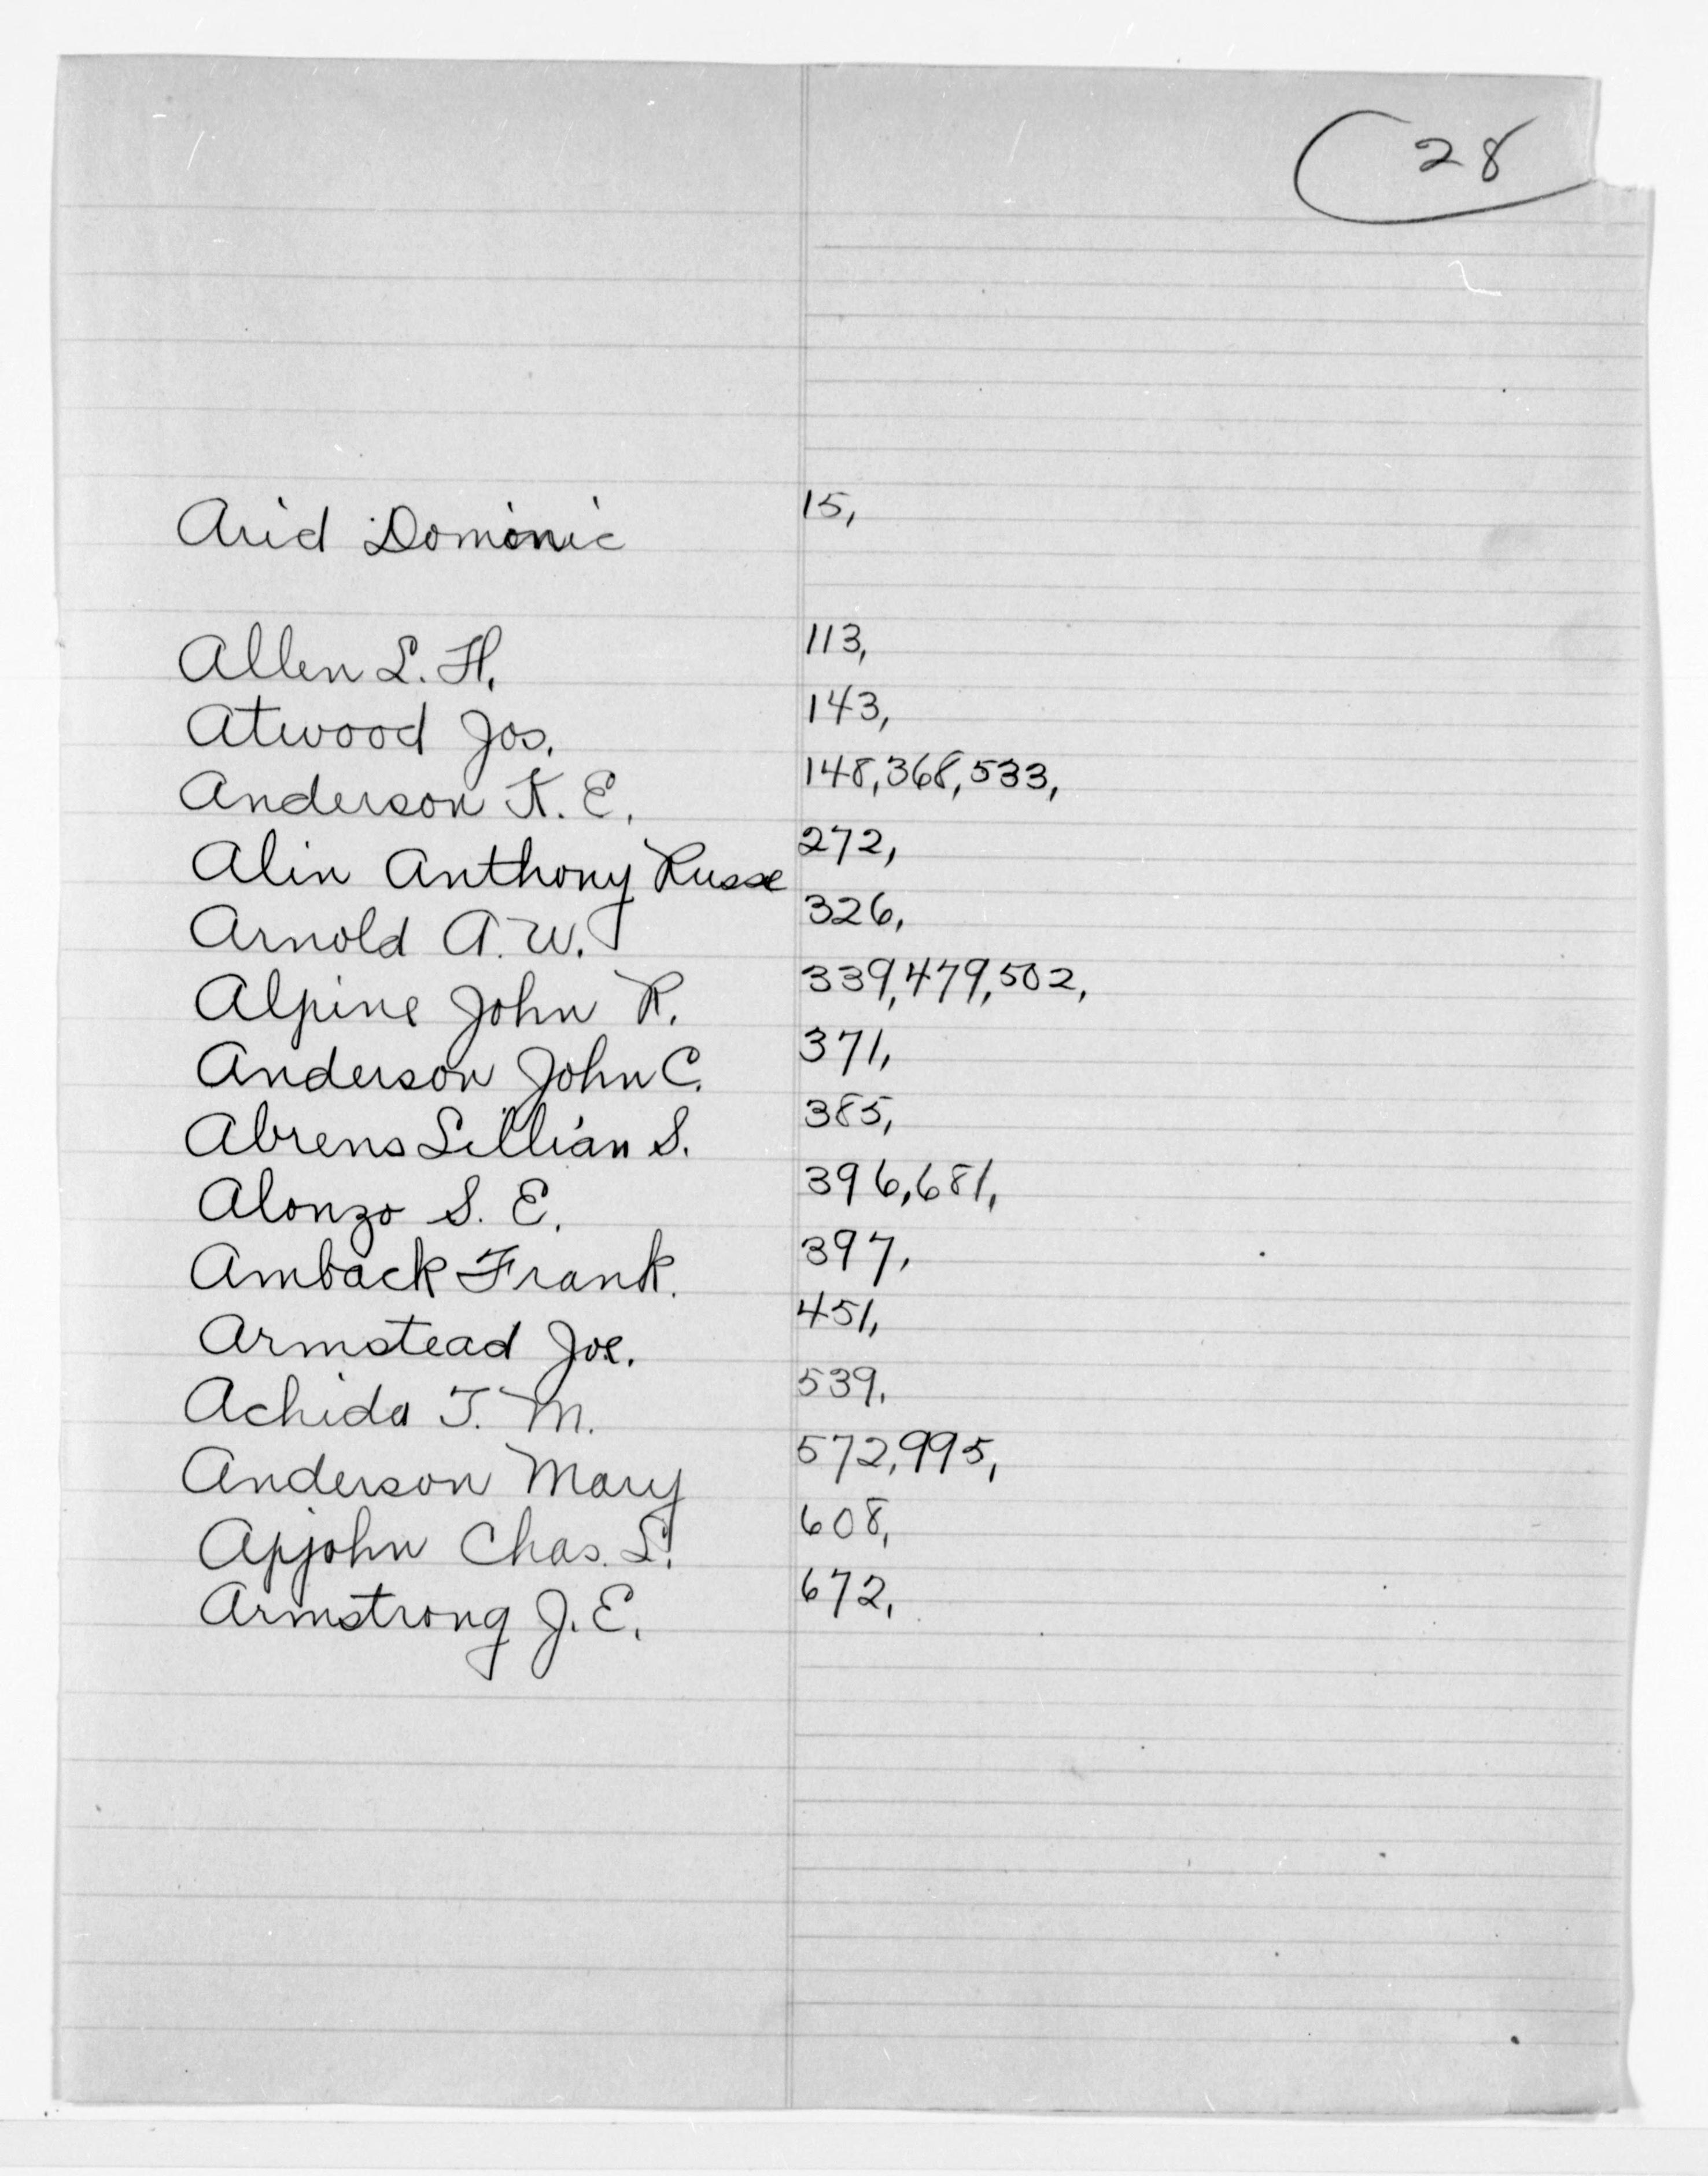 28
Arid Dominic 15,
Allen L. H. 113,
Atwood Jos. 143,
Anderson K. E. 148,368,533,
Alin Anthony Russe 272,
Arnold A. W. 326,
Alpine John R. 339,479,502,
Anderson John C. 371,
Abrens Lillian S. 385,
Alonzo S. E. 396,681,
Amback Frank. 397,
Armstead Joe. 451,
Achida T. M. 539,
Anderson Mary 572,995,
Apjohn Chas. L. 608,
Armstrong J. E. 672,